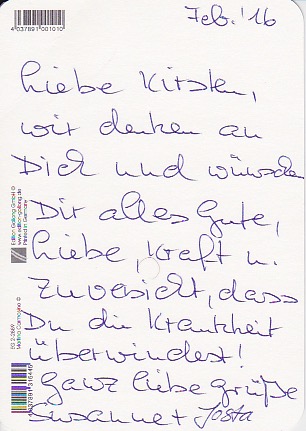 Feb. '16
4 037891 001010
Liebe Kirsten,
wir denken an
Dich und wünschen
Dir alles Gute,
Liebe, Kraft u.
Zuversicht, dass
Du die Krankheit
überwindest!
Ganz liebe Grüße
Susanne + Josta
Edition Gollong GmbH ©
www.edition-gollong.de
Printed in Germany